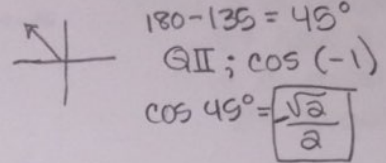 180-135 = 45°
QII; cos (-1)
cos 45° = -√2/2